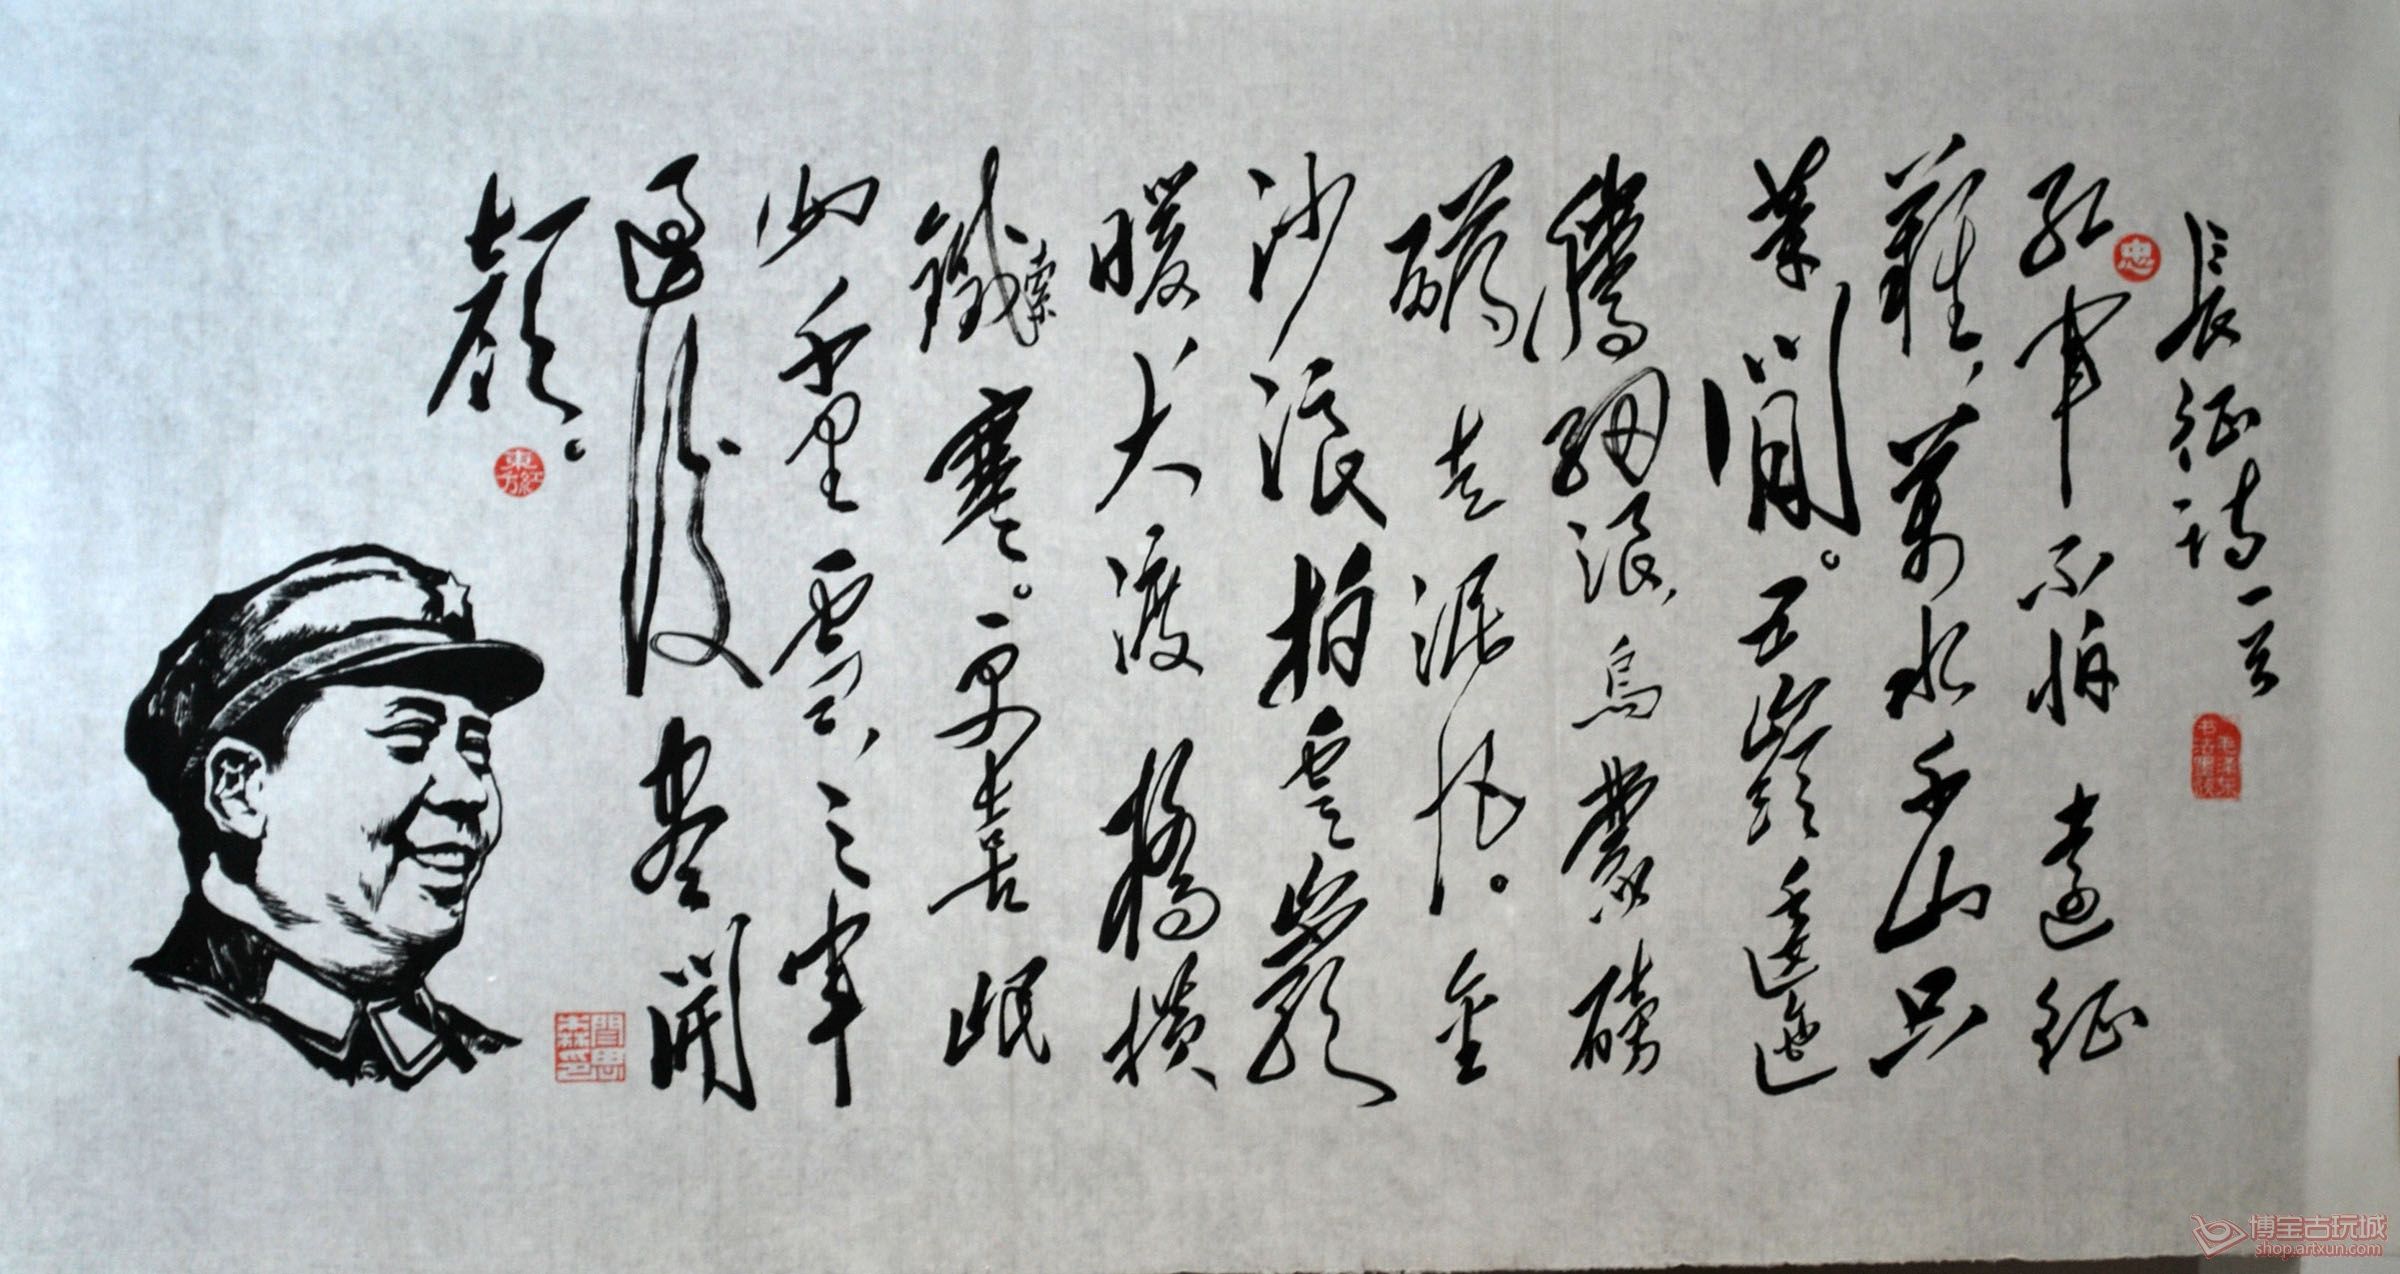 長征詩一首
忠
紅軍不怕遠征
難,萬水千山只
等閒。五嶺逶迤
騰細浪,烏蒙磅
礴走泥丸。金
沙浪拍雲巖
暖大渡橋橫
鐵索寒。更喜岷
山千里雪,三軍
過後盡開
顏。
東方紅
博宝古玩城
shop.artxun.com